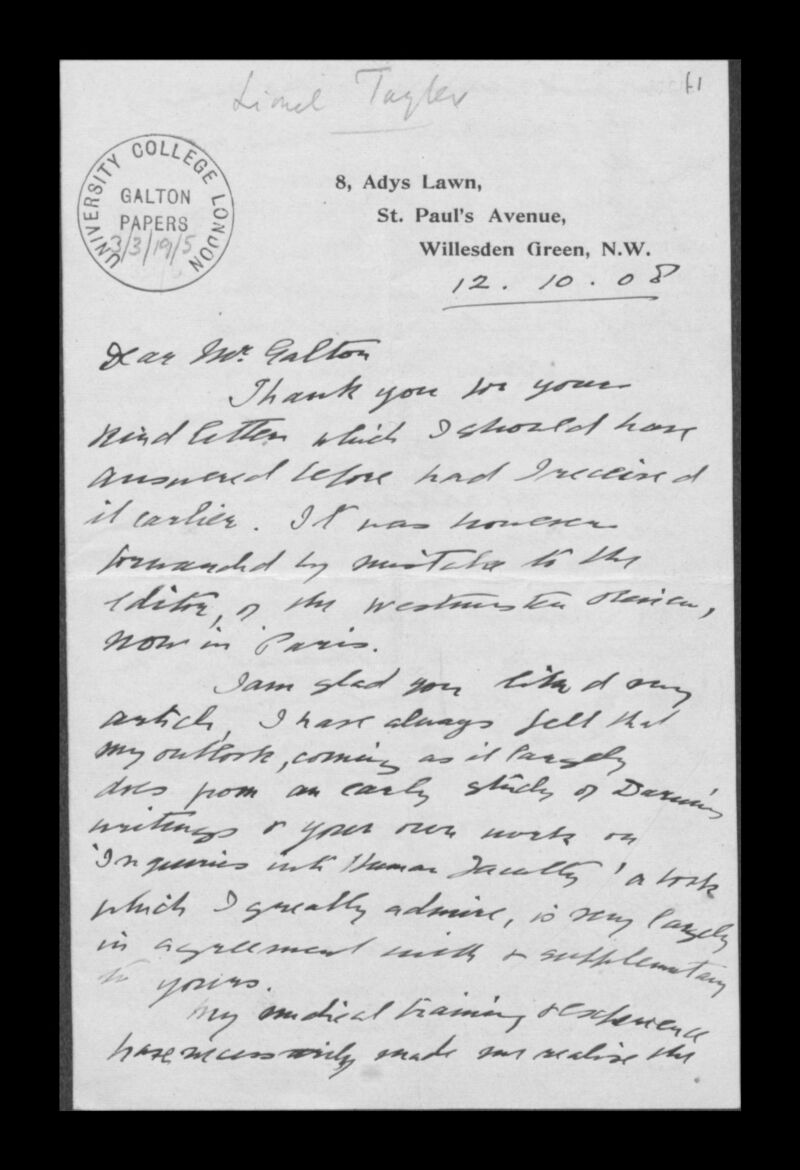 Lionel Tayler
61
UNIVERSITY COLLEGE LONDON
GALTON
PAPERS
3/3/19/5
8, Adys Lawn,
St. Paul's Avenue,
Willesden Green, N.W.
12. 10. 08
Dear Mr. Galton
Thank you for your
kind letter which I should have
answered before had I received
it earlier. It was however
forwarded by mistake to the
editor, of the Westminster Review,
now in Paris.
I am glad you liked my
article, I have always felt that
my outlook, coming as it largely
does from an early study of Darwin's
writings & your own work on
'Inquiries into Human Faculty' a work
which I greatly admire, is very largely
in agreement with & supplementary
to yours.
My medical training & experience
have necessarily made me realise the